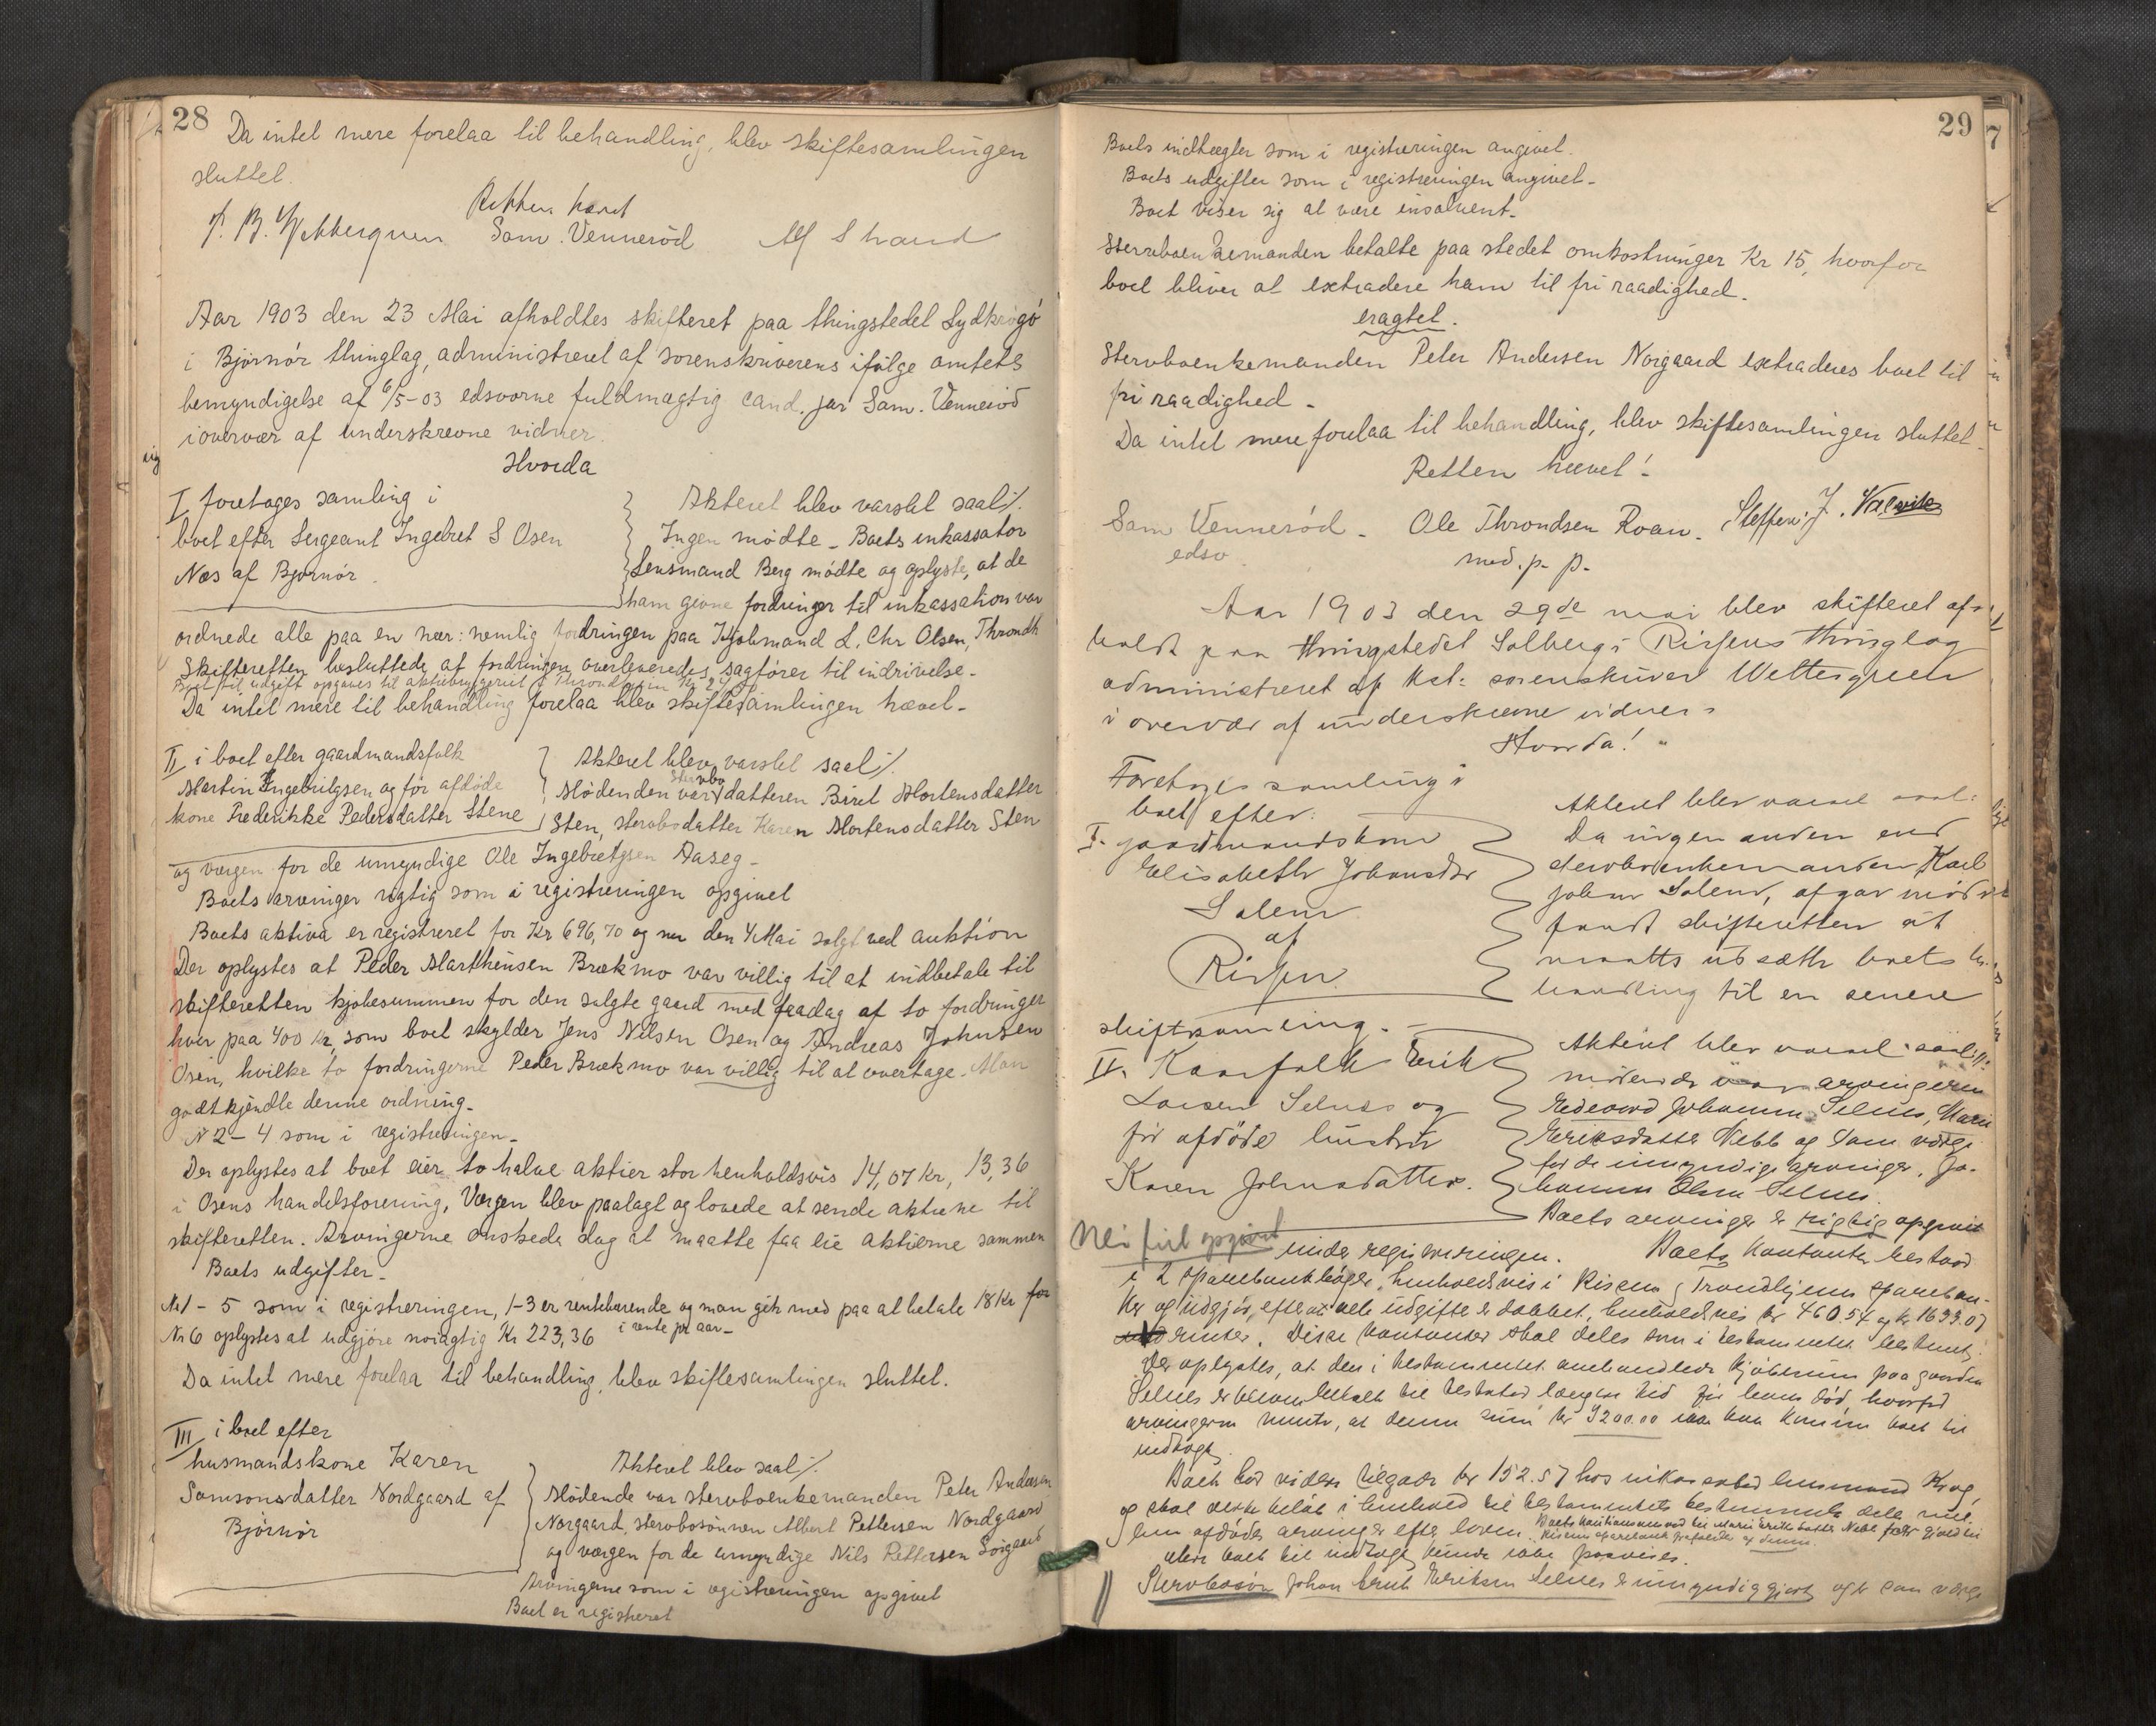 28
Da intet mere forelaa til behandling, blev skiftesamlingen
sluttet.
Retten hævet
Sam. Vennerød
Aar 1903 den 23 Mai afholdtes skifteret paa thingstedet Sydkrogø
i Bjørnør thinglag, administreret af sorenskriverens ifølge amtets
bemyndigelse af 6/5-03 edsvorne fuldmægtig cand. jur Sam. Vennerød
i overvær af underskrevne vidner.
Hvorda
I foretoges samling i
boet efter Sergeant Ingebret S Osen
Næs af Bjørnør.
Akteret blev varslet saal%.
Ingen mødte - Boets inkassator
Lensmand Berg mødte og oplyste, at de
ham givne fordringer til inkassation var
ordnede alle paa en nær: nemlig fordringen paa L. Chr Olsen, Throndh
Skifteretten besluttede at fordringen overleveredes sagfører til indrivelse.
Da intet mere til behandling forelaa blev skiftesamlingen hævet.
II i boet efter gaardmandsfolk
Martin Ingebrigtsen og før afdøde
kone Frederikke Pedersdatter Stene
Akteret blev varslet saal%.
stervbo
Mødenden var datteren Biret Mortensdatter
Sten, stervbodatter Karen Mortensdatter Sten
og værgen for de umyndige Ole Ingebretgsen Aaseg-
Boets arvinger rigtig som i registreringen opgivet
Boets aktiva er registreret for Kr 696,70 og nu den 4 Mai solgt ved auktion
Der oplystes at Peder Marthinsen Brækmo var villig til at indbetale til
skifteretten kjøbesummen for den solgte gaard med fradag af to fordringer
hver paa 400 Kr, som boet skylder Jens Nilsen Osen og Andreas Johnsen
Osen, hvilke to fordringerne Peder Brækmo var villig til at overtage. Man
godtkjendte denne ordning-
N 2-4 som i registreringen-
Der oplystes at boet eier to halve aktier stor henholdsvis 14,07 Kr, 13,36
i Osens handelsforening, Værgen blev paalagt og lovede at sende aktiene til
skifteretten. Arvingerne ønskede dog at maatte faa eie aktierne sammen
Boets udgifter-
N 1 - 5 som i registreringen, 1-3 er rentebærende og man gik med paa at betale 18 Kr for
i rente pr aar-
No 6 oplystes at udgjøre nøiagtig Kr 223,36
Da intet mere forelaa til behandling, blev skiftesamlingen sluttet.
III i boet efter
husmandskone Karen
Samsonsdatter Nordgaard af
Bjørnør
Akteret blev saal%.
Mødende var stervboenkemanden Peter Andersen
Norgaard, stervbosønnen Albert Pettersen Nordgaard
og værgen for de umyndige Nils Pettersen Sørgaard
Arvingerne som i registreringen opgivet
Boet er registreret
29
Boets indtægter som i registreringen angivet.
Boets udgifter som i registreringen angivet-
Boet viser sig at være insolvent-
Stervboenkemanden betalte paa stedet omkostninger Kr 15, hvorfor
boet bliver at extradere ham til fri raadighed.
eragtet.
Stervboenkemanden Peter Andersen Norgaard extraderes boet til
fri raadighed -
Da intet mere forelaa til behandling, blev skiftesamlingen sluttet.
Retten hævet!
Sam Vennerød - Ole Throndsen Roan. Steffen J.
edsv. med. p. p.
Aar 1903 den 29de mai blev skifteret af-
holdt paa thingstedet Solberg i Rissens thinglag
administreret af Kst: sorenskriver Wettergreen
i overvær af underskrevne vidner.
Hvorda!
Foretoges samling i
boet efter:
I. gaardmandskone
Elisabeth Johansdtr
Salem
af
Rissen
Akteret blev varslet saal:
Da ingen anden end
stervboenkemanden Karl
Johan Salem, afgav møde
fandt skifteretten at
maatte udsætte boets be-
handling til en senere
skiftesamling. -
II. Kaarfolk Erik
Larsen Selnes og
før afdøde hustru
Karen Johnsdatter.
Akteret blev varslet saal%.
mødende var arvingerne
Edevard Johannes Selnes, Marie
Eriksdatter Nebb og som værge
for de umyndige arvinger, Jo-
hannes Olsen Selnes.
Boets arvinger er rigtig opgivet
under registreringen. Boets kontanter bestaar
i 2 sparebankbøger, henholdsvis i Rissens & Trondhjems spareban-
ker og udgjør, efter at alle udgifter er dækket, henholdsvis kr 460.54 og kr 1699.07
renter. Disse kontanter skal deles som i testamentet bestemt.
Der oplystes, at den i testamentet omhandlede kjøbesum paa gaarden
Selnes er bleven betalt til testator længere tid før hans død, hvorfor
arvingerne mente, at denne sum kr 3200.00 ikke kan komme boet til
indtægt.
Boet har videre tilgode kr 152.57 hos inkassator lensmand Krog,
og skal dette beløb i henhold til testamentets bestemmelse deles mel-
lem afdødes arvinger efter loven.
Mere boet til indtægt kunde ikke paavises.
Stervbosøn Johan Ernst Eriksen Selnes er umyndiggjort og er som værge